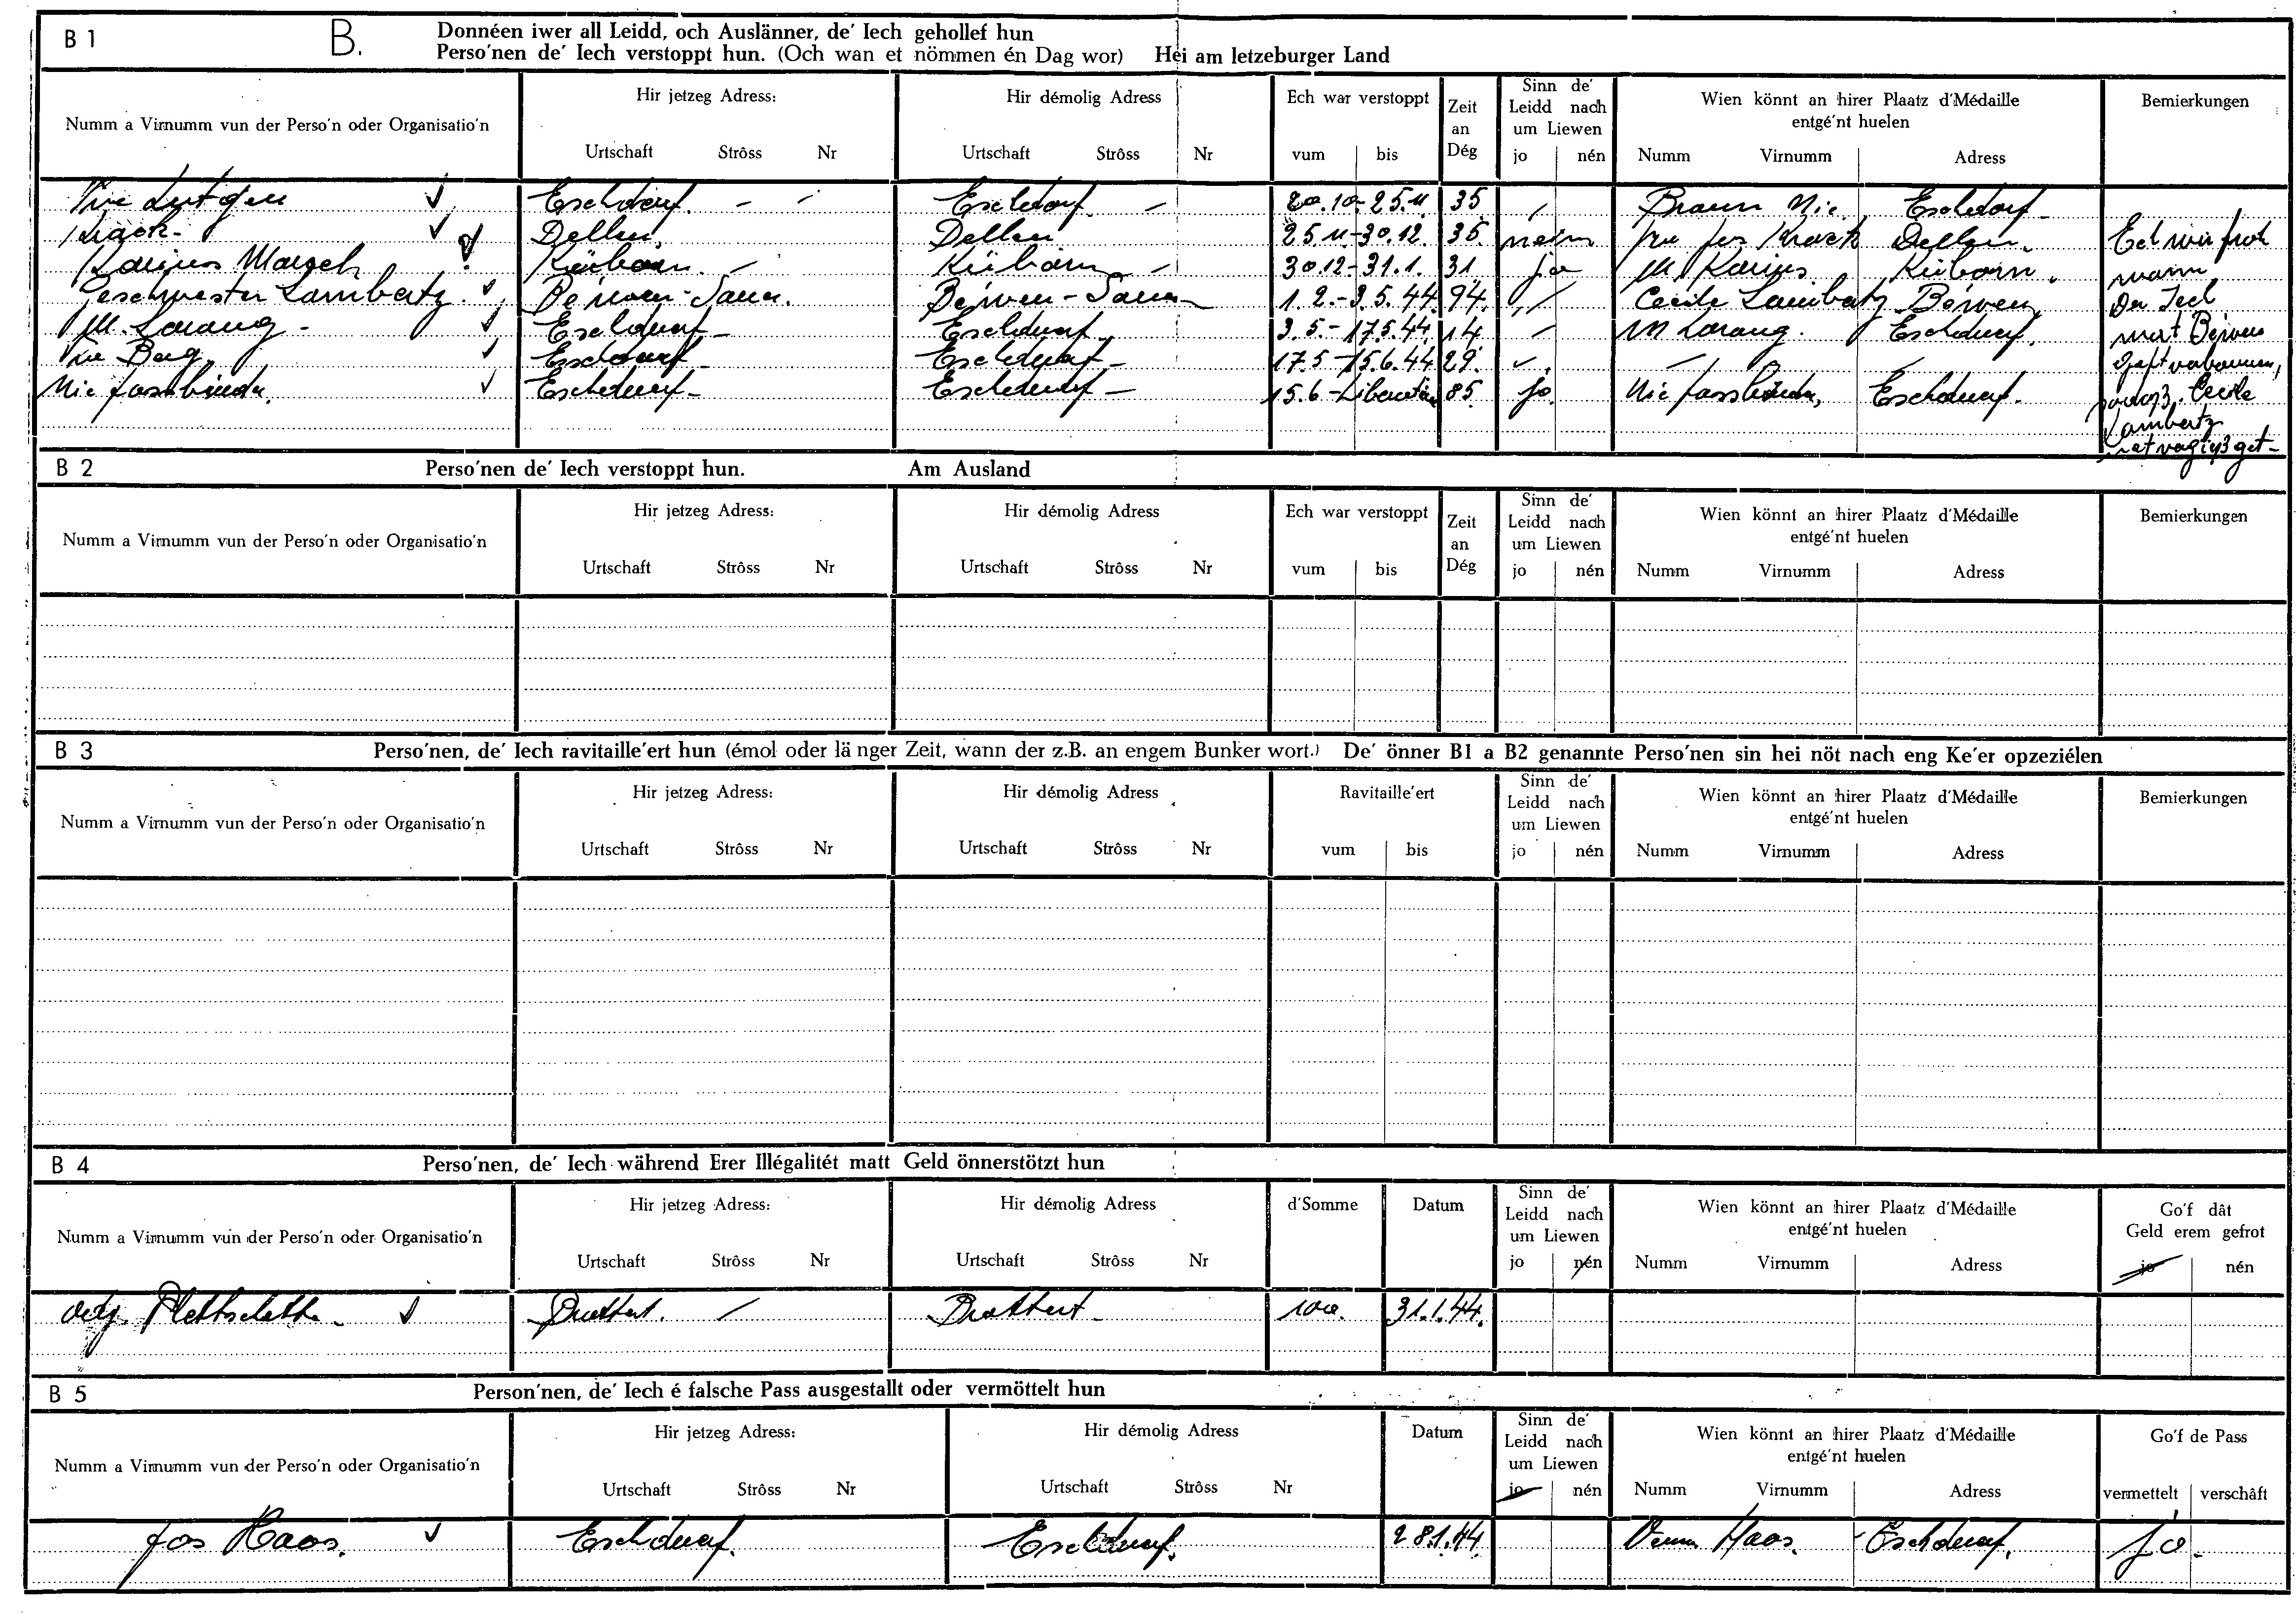 B 1 B. Donnéen iwer all Leidd, och Auslänner, de' Iech gehollef hun
Perso'nen de' Iech verstoppt hun. (Och wan et nömmen én Dag wor) Héi am letzeburger Land
Numm a Virnumm vun der Perso'n oder Organisatio'n Hir jetzeg Adress: Hir démolig Adress Ech war verstoppt Zeit an Dég Sinn de' Leidd nach um Liewen Wien könnt an hirer Plaatz d'Médaille entgé'nt huelen Bemierkungen
Urtschaft Strôss Nr Urtschaft Strôss Nr vum bis jo nén Numm Virnumm Adress
Vve Lutgen Eschdorf. - - Eschdorf. - 20.10-25.11 35 Braun Nic. Eschdorf-
Krack- Dellen. Dellen. 25.11-30.12. 35. nein Jos Krack Dellen. Ech wir froh
Karius Margch Küborn. - Küborn - 30.12-31.1. 31 jo M Karius Küborn. wann
Geschwester Lambertz. Béiwen-Sauer. Béiwen-Sauer 1.2.-3.5.44. 94. Cecile Lambertz Béiwen Der Iech
M. Larang - Eschduerf- Eschduerf- 3.5.-17.5.44. 14 - M Larang. Eschduerf. mat Béiwen
Vve Berg. Eschduerf- Eschduerf- 17.5-15.6.44 29.
Nic fassbinder. Eschduerf- Eschduerf- 15.6-Liberation 85. jo. Nic fassbinder, Eschduerf. Cecile
Lambertz
B 2 Perso'nen de' Iech verstoppt hun. Am Ausland
Numm a Virnumm vun der Perso'n oder Organisatio'n Hir jetzeg Adress: Hir démolig Adress Ech war verstoppt Zeit an Dég Sinn de' Leidd nach um Liewen Wien könnt an hirer Plaatz d'Médaille entgé'nt huelen Bemierkungen
Urtschaft Strôss Nr Urtschaft Strôss Nr vum bis jo nén Numm Virnumm Adress
B 3 Perso'nen, de' Iech ravitaille'ert hun (émol oder länger Zeit, wann der z.B. an engem Bunker wort.) De' önner B1 a B2 genannte Perso'nen sin hei nöt nach eng Ke'er opzeziélen
Numm a Virnumm vun der Perso'n oder Organisatio'n Hir jetzeg Adress: Hir démolig Adress Ravitaille'ert Sinn de' Leidd nach um Liewen Wien könnt an hirer Plaatz d'Médaille entgé'nt huelen Bemierkungen
Urtschaft Strôss Nr Urtschaft Strôss Nr vum bis jo nén Numm Virnumm Adress
B 4 Perso'nen, de' Iech während Erer Illégalitét matt Geld önnerstötzt hun
Numm a Virnumm vun der Perso'n oder Organisatio'n Hir jetzeg Adress: Hir démolig Adress d'Somme Datum Sinn de' Leidd nach um Liewen Wien könnt an hirer Plaatz d'Médaille entgé'nt huelen Go'f dât Geld erem gefrot
Urtschaft Strôss Nr Urtschaft Strôss Nr jo nén Numm Virnumm Adress jo nén
Prattert. - Prattert- 100. 31.1.44.
B 5 Person'nen, de' Iech é falsche Pass ausgestallt oder vermöttelt hun
Numm a Virnumm vun der Perso'n oder Organisatio'n Hir jetzeg Adress: Hir démolig Adress Datum Sinn de' Leidd nach um Liewen Wien könnt an hirer Plaatz d'Médaille entgé'nt huelen Go'f de Pass
Urtschaft Strôss Nr Urtschaft Strôss Nr jo nén Numm Virnumm Adress vermettelt verschâft
Jos Haas. Eschduerf. Eschduerf. 28.1.44. Haas. Eschduerf. jo.